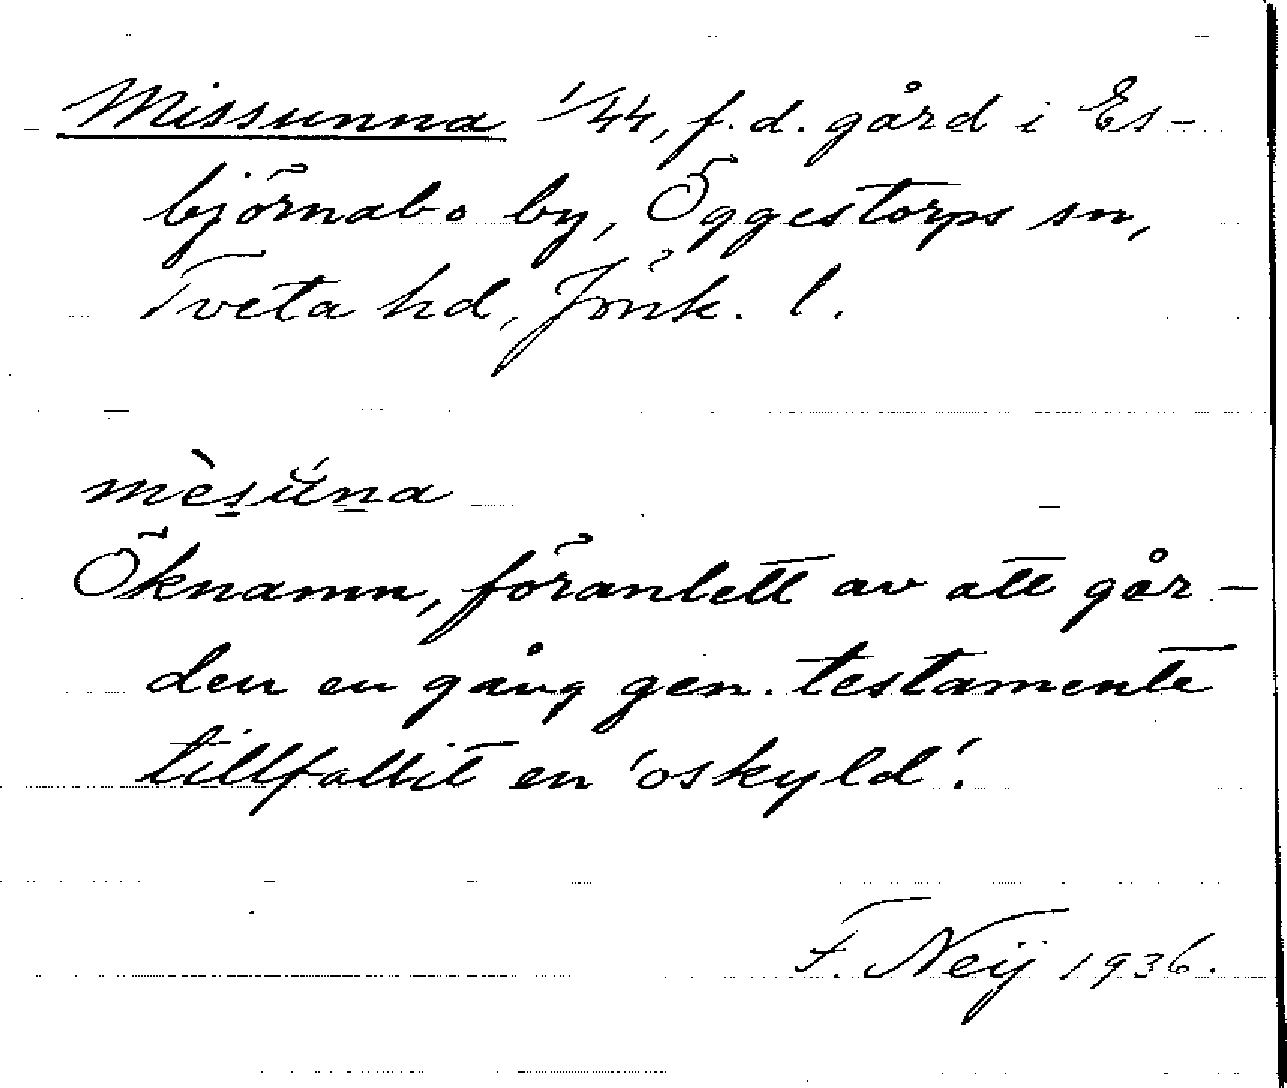 Missunna 1/44, f.d. gård i Es-
björnabo by, Öggestorps sn,
Tveta hd, Jönk. l.
mès̠ǘn̠a
Öknamn, föranlett av att går-
den en gång gen. testamente
tillfallit en 'oskyld'.
F. Neij 1936.